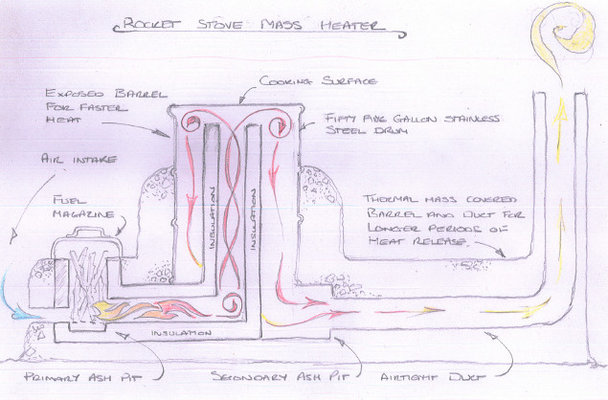 ROCKET STOVE MASS HEATER
COOKING SURFACE
EXPOSED BARREL
FOR FASTER
HEAT
FIFTY FIVE GALLON STAINLESS
STEEL DRUM
AIR INTAKE
FUEL
MAGAZINE
INSULATION
INSULATION
THERMAL MASS COVERED
BARREL AND DUCT FOR
LONGER PERIODS OF
HEAT RELEASE
INSULATION
PRIMARY ASH PIT
SECONDARY ASH PIT
AIRTIGHT DUCT